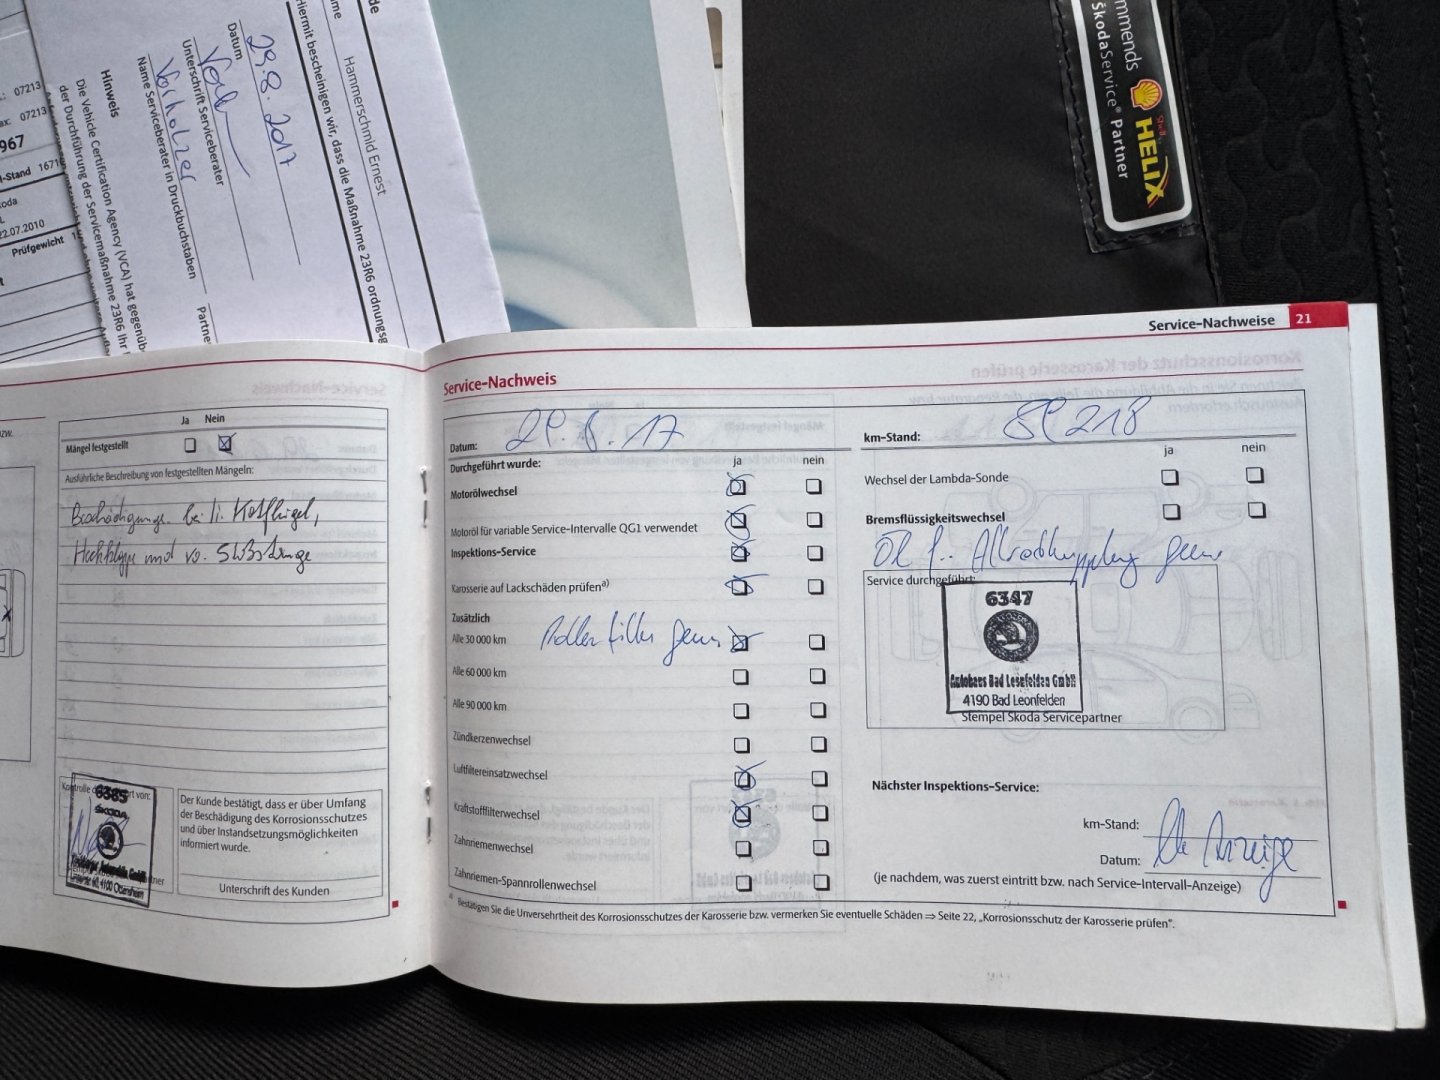 .: 07213
ax: 07213
967
l-Stand 1671
koda
22.07.2010
Prüfgewicht
Hinweis
Die Vehicle Certification Agency (VCA) hat gegenüb
der Durchführung der Servicemaßnahme 23R6 Ihr
Name Serviceberater in Druckbuchstaben
Partne
Unterschrift Serviceberater
Datum
29.8.2017
Hiermit bescheinigen wir, dass die Maßnahme 23R6 ordnungsg
Hammerschmid Ernest
me
de
mmends
ŠkodaService® Partner
Shell
HELIX
zw.
Ja Nein
Mängel festgestellt
Ausführliche Beschreibung von festgestellten Mängeln:
Beschädigung bei li. Kotflügel,
Heckklappe und vo. Stoßstange
6385
ŠKODA
Der Kunde bestätigt, dass er über Umfang
der Beschädigung des Korrosionsschutzes
und über Instandsetzungsmöglichkeiten
informiert wurde.
Unterschrift des Kunden
Service-Nachweise 21
Service-Nachweis
Datum: 29.8.17
km-Stand:
Durchgeführt wurde: ja nein
Motorölwechsel
Motoröl für variable Service-Intervalle QG1 verwendet
Inspektions-Service
Karosserie auf Lackschäden prüfen a)
Zusätzlich
Alle 30 000 km
Alle 60 000 km
Alle 90 000 km
Zündkerzenwechsel
Luftfiltereinsatzwechsel
Kraftstofffilterwechsel
Zahnriemenwechsel
Zahnriemen-Spannrollenwechsel
ja nein
Wechsel der Lambda-Sonde
Bremsflüssigkeitswechsel
Öl f. Allradkupplung
Service durchgeführt:
6347
4190 Bad Leonfelden
Stempel Skoda Servicepartner
Nächster Inspektions-Service:
km-Stand:
Datum:
Anzeige
(je nachdem, was zuerst eintritt bzw. nach Service-Intervall-Anzeige)
a) Bestätigen Sie die Unversehrtheit des Korrosionsschutzes der Karosserie bzw. vermerken Sie eventuelle Schäden ⇒ Seite 22, „Korrosionsschutz der Karosserie prüfen".